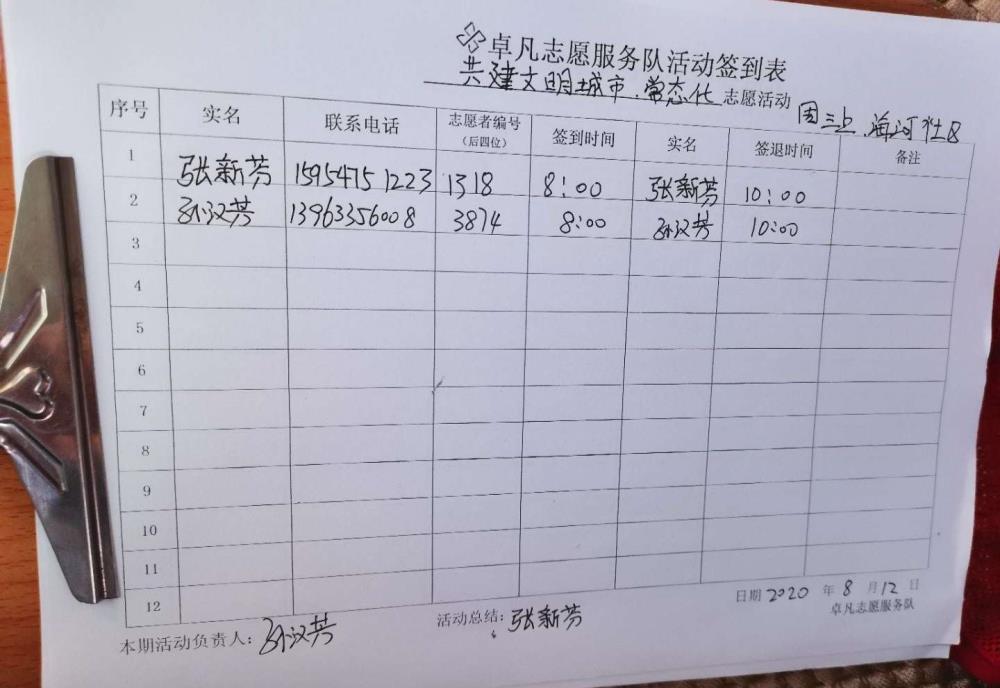 卓凡志愿服务队活动签到表
共建文明城市.常态化 志愿活动
周三上.海河社区
序号 实名 联系电话 志愿者编号（后四位） 签到时间 实名 签退时间 备注
1 张新芳 15954751223 1318 8:00 张新芳 10:00
2 孙汉芳 13963356008 3874 8:00 孙汉芳 10:00
3
4
5
6
7
8
9
10
11
12
日期 2020 年 8 月 12 日
卓凡志愿服务队
本期活动负责人：孙汉芳 活动总结：张新芳